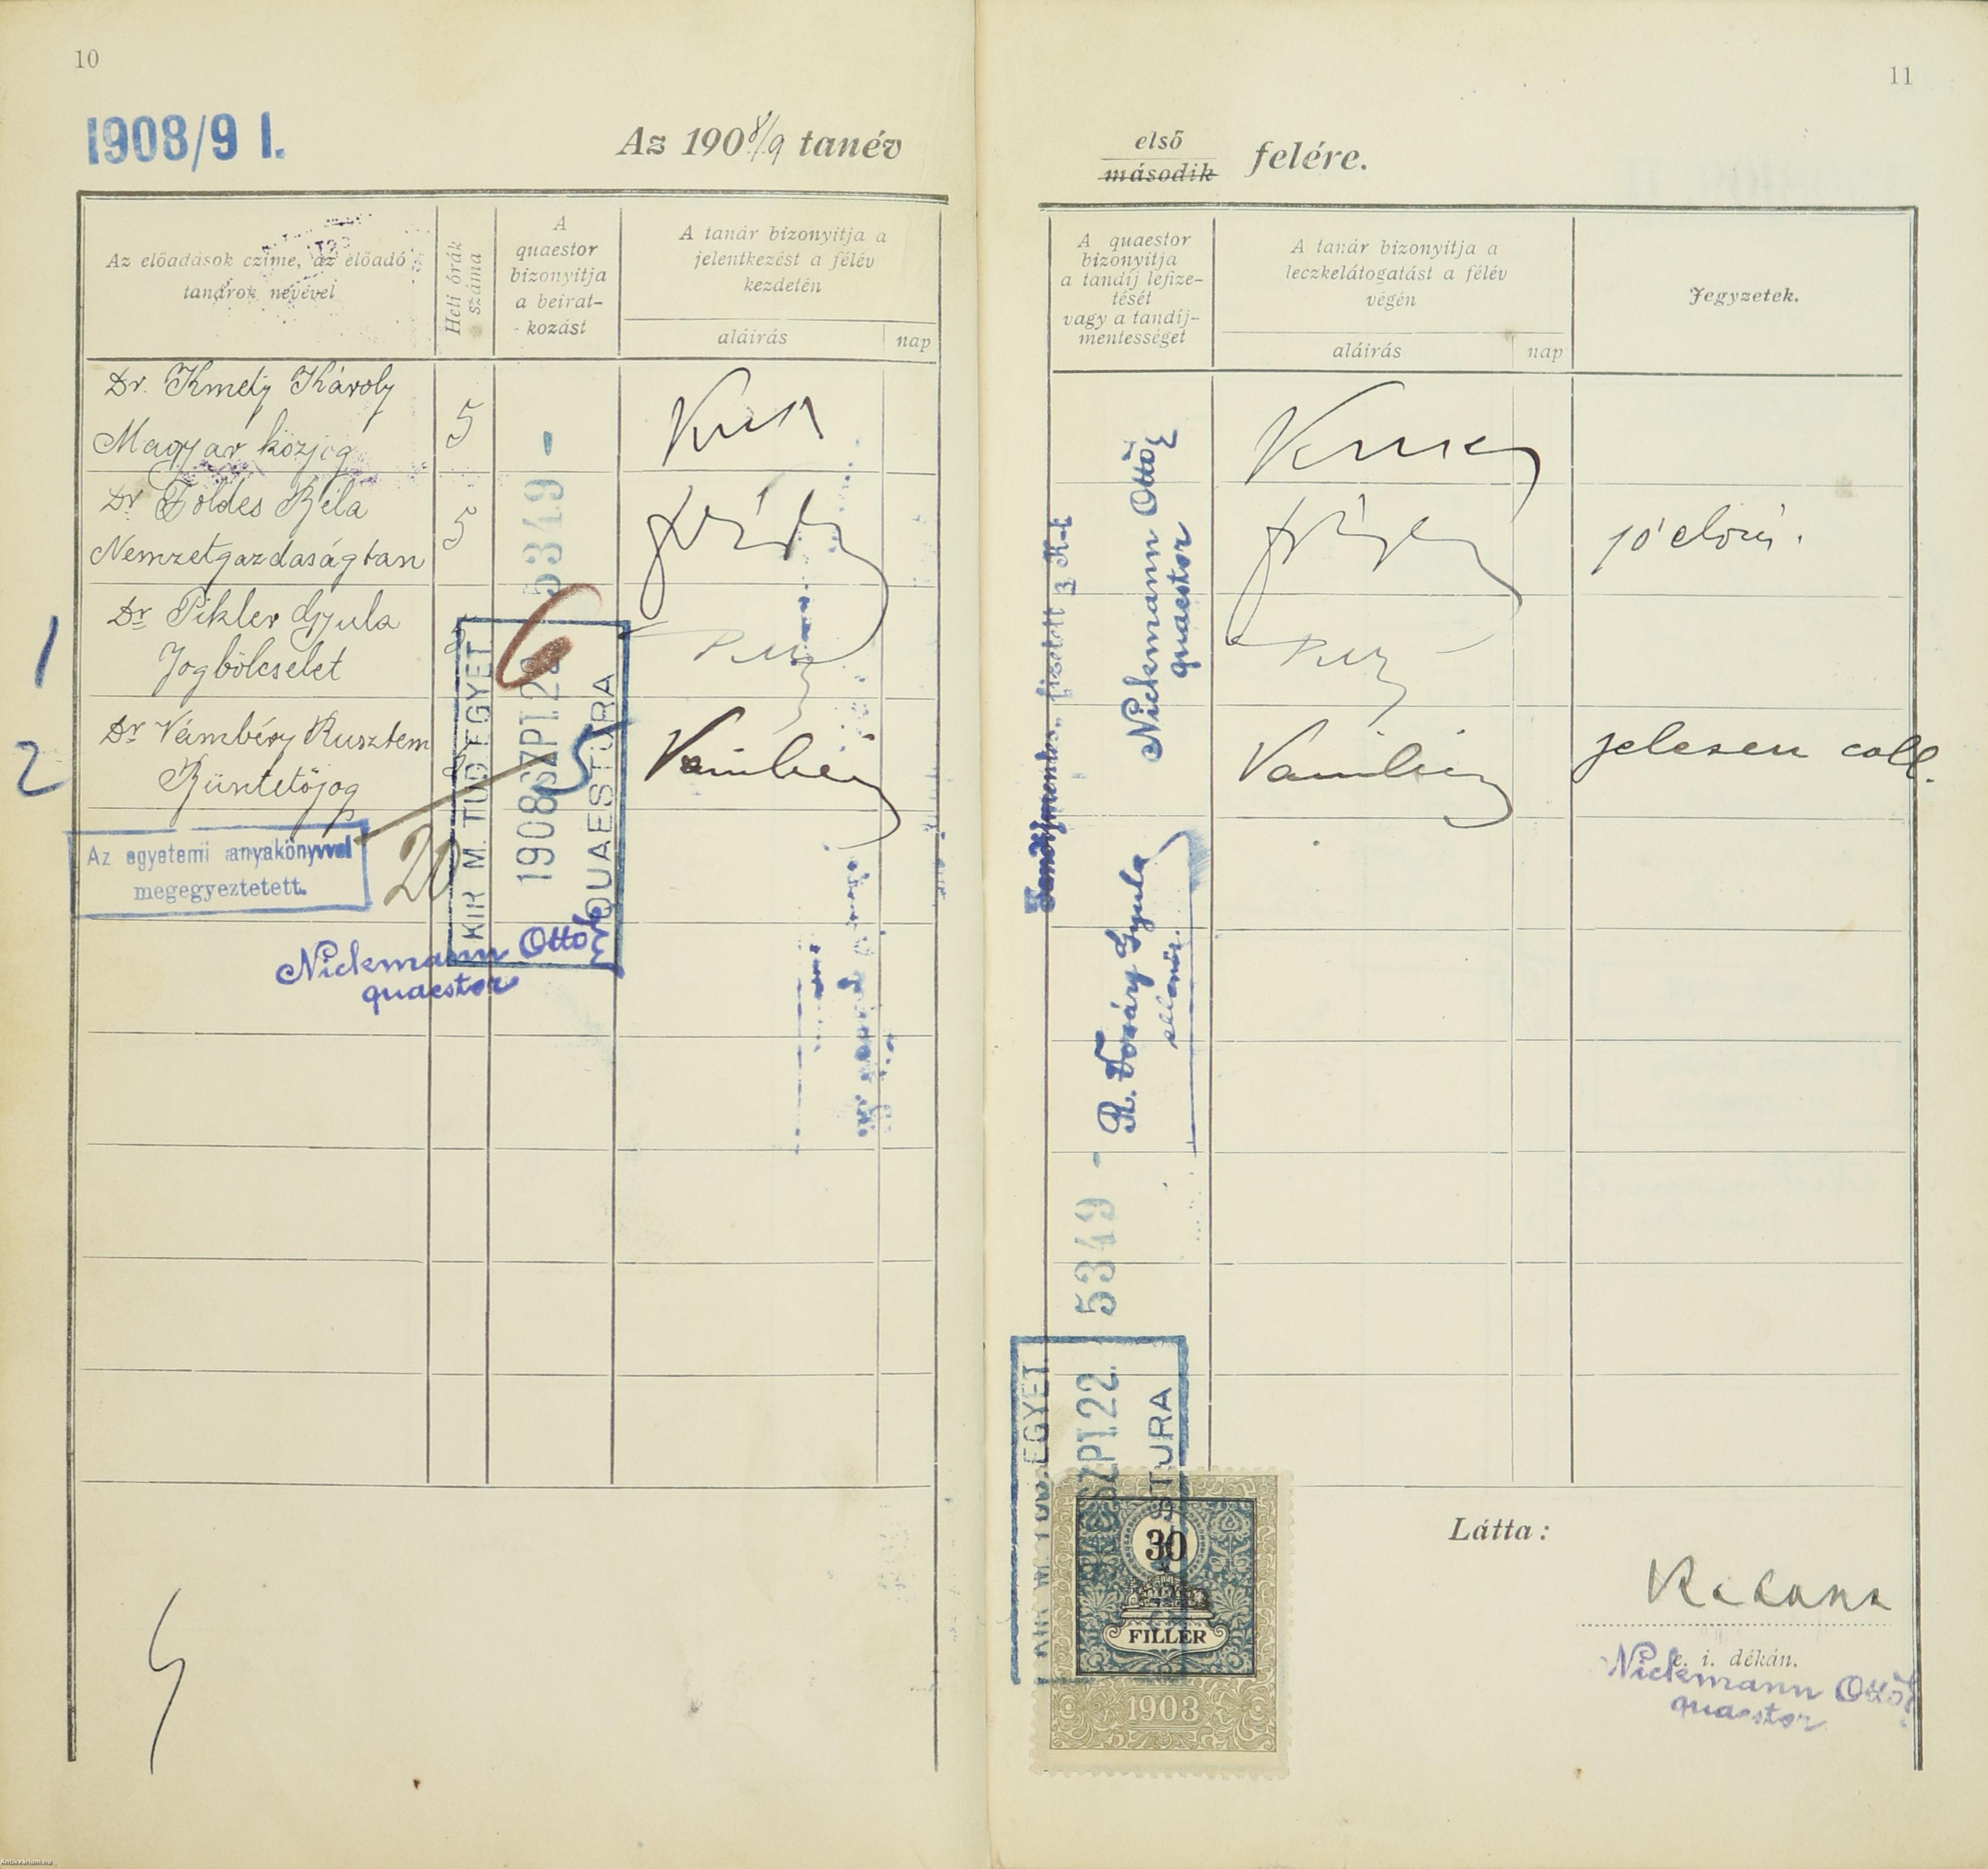 10
1908/9 I.
Az 1908/9 tanév
Az előadások czíme, az előadó
tanárok nevével
Heti órák
száma
A
quaestor
bizonyítja
a beirat-
kozást
A tanár bizonyítja a
jelentkezést a félév
kezdetén
aláírás
nap
Dr. Kmety Károly
Magyar közjog
5
Dr Földes Béla
Nemzetgazdaságtan
5
1
Dr Pikler Gyula
Jogbölcselet
5
2
Dr Vámbéry Rusztem
Büntetőjog
5
Vámbéry
20
6
5349 -
KIR M. TUD EGYET
1908 SZPT. 22
QUAESTURA
Az egyetemi anyakönyvvel
megegyeztetett.
Nickmann Ottó
quaestor
11
első
második
felére.
A quaestor
bizonyítja
a tandíj lefize-
tését
vagy a tandíj-
mentességet
A tanár bizonyítja a
leczkelátogatást a félév
végén
aláírás
nap
Jegyzetek.
Tandíjmentes, fizetett 3 K-t
Nickmann Ottó
quaestor
jelesen coll.
Vámbéry
Gyula
ellenőr.
5349 -
KIR M. TUD. EGYET.
SZPT. 22.
STURA
30
FILLÉR
1903
Látta:
e. i. dékán.
Nickmann Ottó
quaestor
Antikvarium.hu